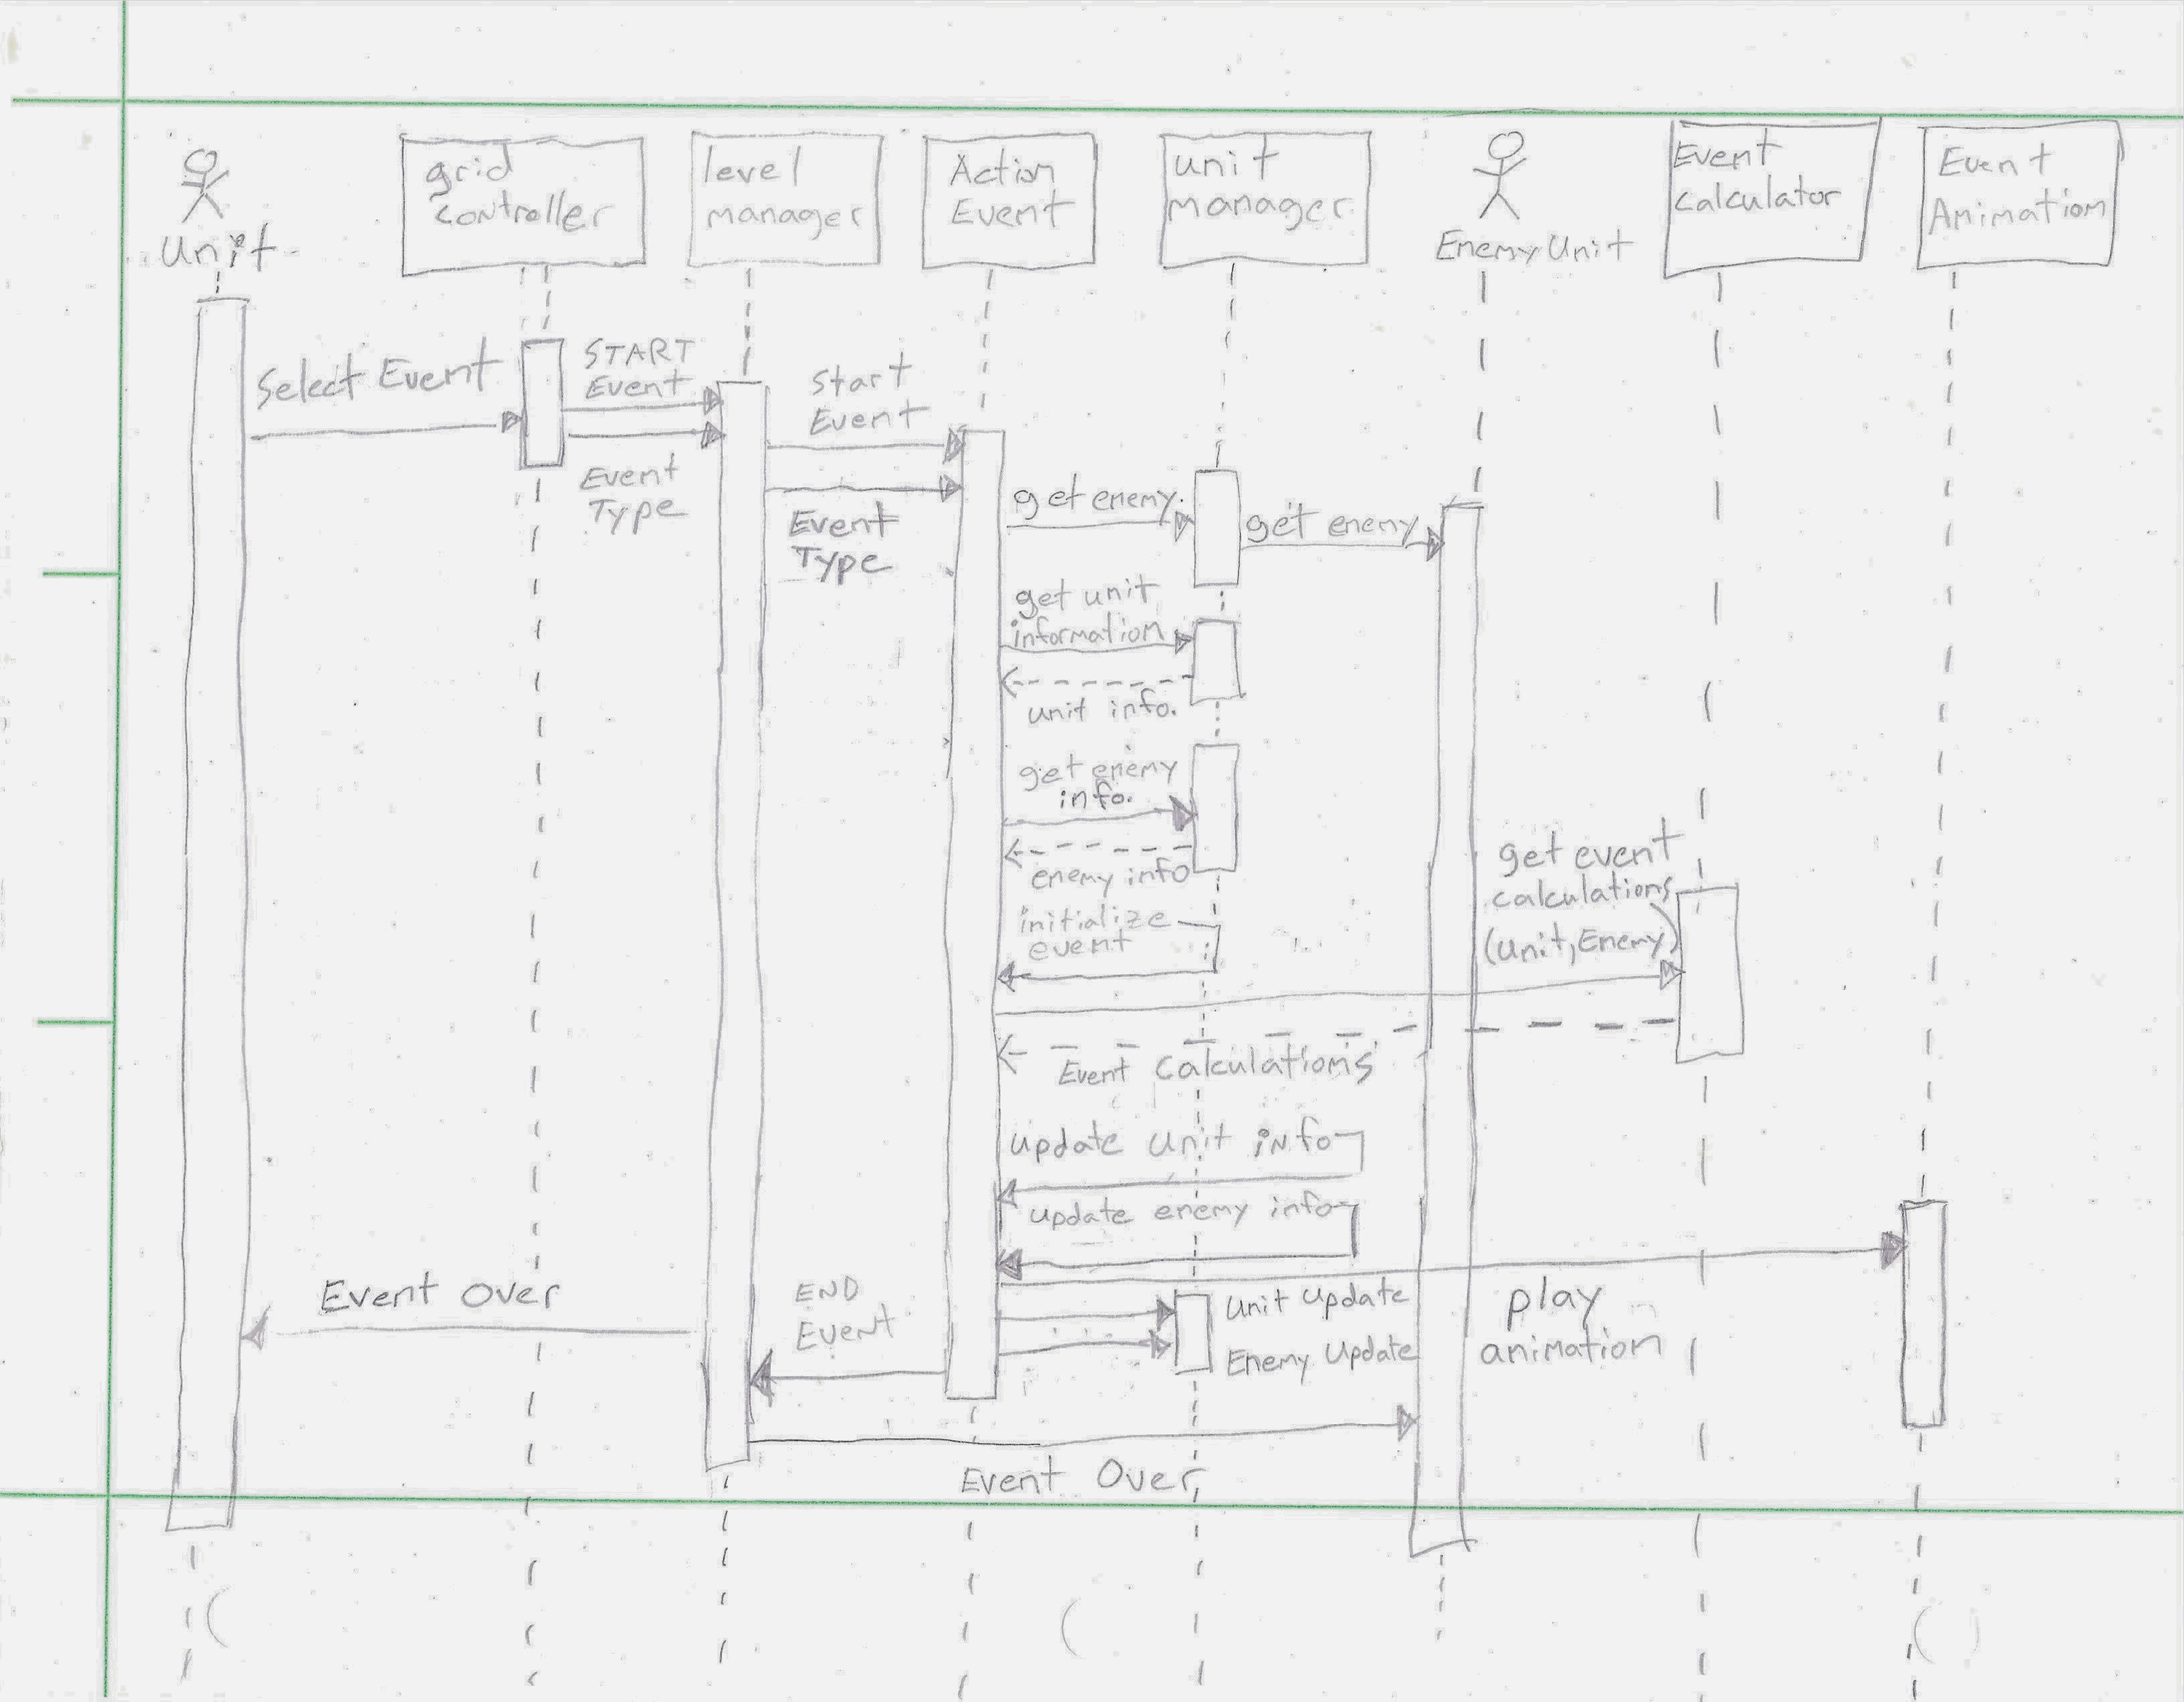 Unit
grid
controller
level
manager
Action
Event
unit
manager
Enemy Unit
Event
calculator
Event
Animation
Select Event
START
Event
Event
Type
Start
Event
Event
Type
get enemy
get enemy
get unit
information
unit info.
get enemy
info.
enemy info
initialize
event
get event
calculations
(Unit, Enemy)
Event Calculations
update unit info
update enemy info
Event Over
END
Event
Unit Update
Enemy Update
play
animation
Event Over